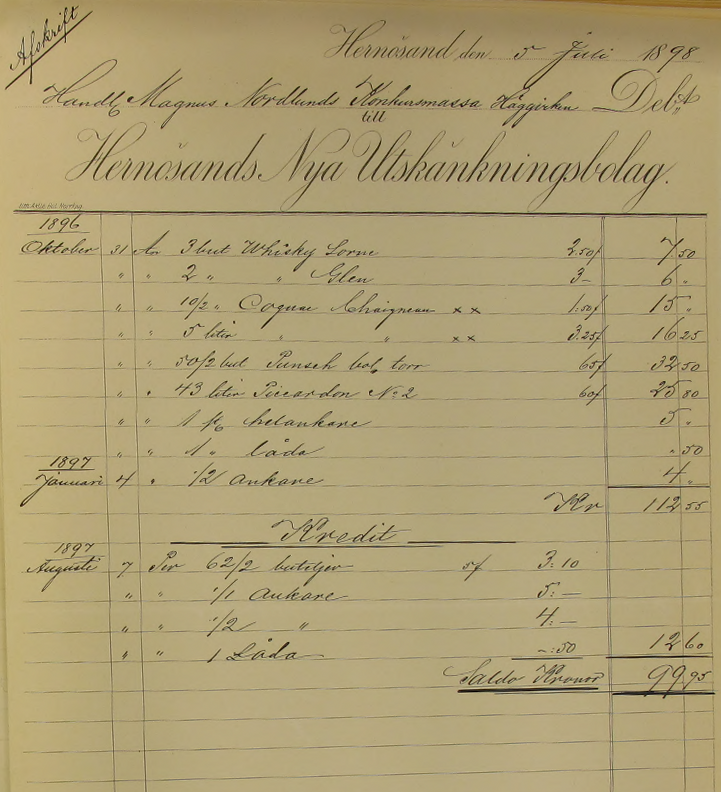 Afskrift
Hernösand den 5 Juli 1898
Handl. Magnus Nordlunds Konkursmassa Häggirken Debt
till
Hernösands Nya Utskänkningsbolag.
1896
Oktober 31 An 3 but Whisky Lorne 2.50f 7,50
" " 2 " " Glen 3- 6 "
" " 10/2 " Cognac Chaigneau xx 1:50f 15 "
" " 5 liter " " xx 3.25f 16 25
" " 50/2 but Punsch bol torr 65f 32 50
" " 43 liter Piccardon No 2 60f 25 80
" " 1 st helankare 5 "
" " 1 " låda " 50
1897
Januari 4 " 1/2 ankare 4 "
Kr 112 55
Kredit
1897
Augusti 7 Per 62/2 buteljer 5f 3:10
" " 1/1 ankare 5:-
" " 1/2 " 4:-
" " 1 Låda -:50 12 60
Saldo Kronor 99,95